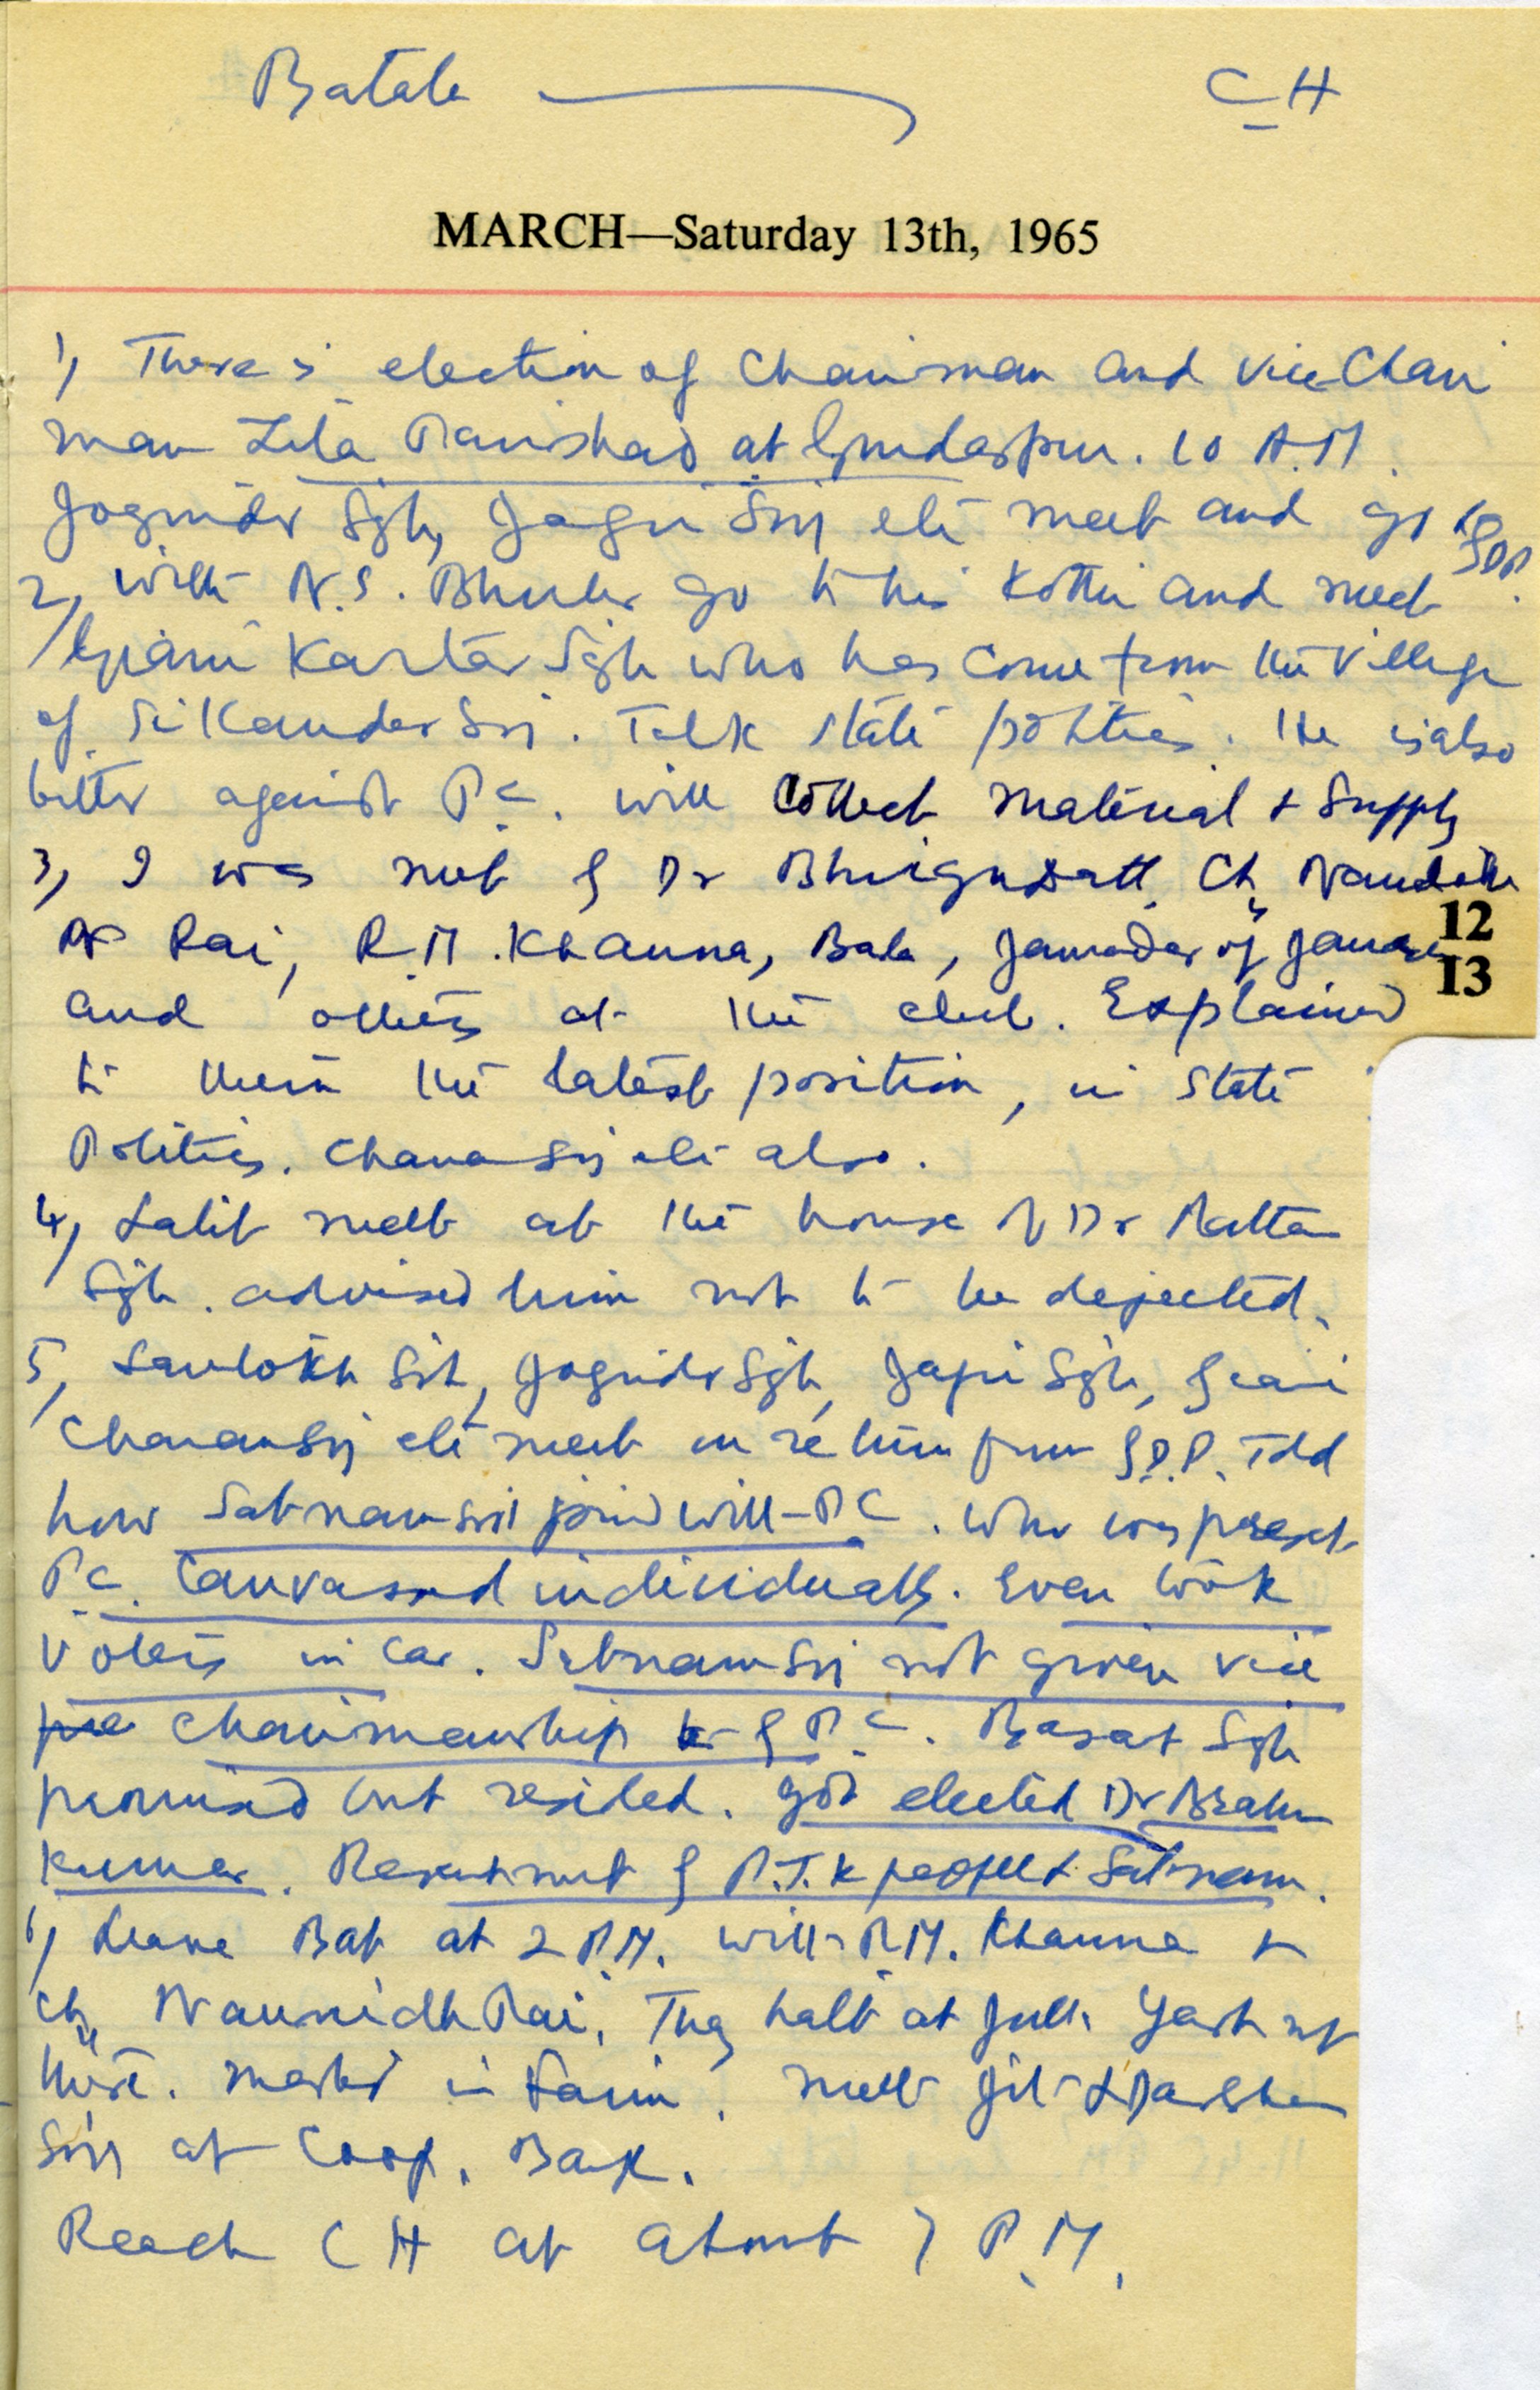 Batala C H
MARCH—Saturday 13th, 1965
1) There is election of Chairman and Vice Chair
man Zila Parishad at Gurdaspur. 10 A.M.
Joginder Sgh, Jagir Sgh etc meet and go to GDP.
2) With N.S. go to his Kothi and meet
Giani Kartar Sgh who has come from the village
of Sikander Sgh. Talk state politics. He is also
bitter against P.C. will collect material & supply
3) I was met by Dr Bhrigu Datt, Ch Naunidh
Rai, R.M. Khanna, Jamadar of
and others at the club. Explained
to them the latest position, in State
Politics. Sgh etc also.
4) Lalit meet at the house of Dr Rattan
Sgh. advised him not to be dejected.
5) Sgh, Joginder Sgh, Jagir Sgh,
Sgh etc meet on return from G.D.P. Told
how Satnam Sgh joined with P.C. Who was present
P.C. canvassed individually. Even took
Voters in car. Satnam Sgh not given vice
chairmanship by P.C. Sgh
promised but resiled. got elected Dr
Kumar. Resentment of people & Satnam.
6) Leave Bat at 2 P.M. with R.M. Khanna &
Ch Naunidh Rai. They halt at Jull. Yash not
there. in . meet Jit & Darshan
Sgh at Coop. Bank.
Reach C H at about 7 P.M.
12
13